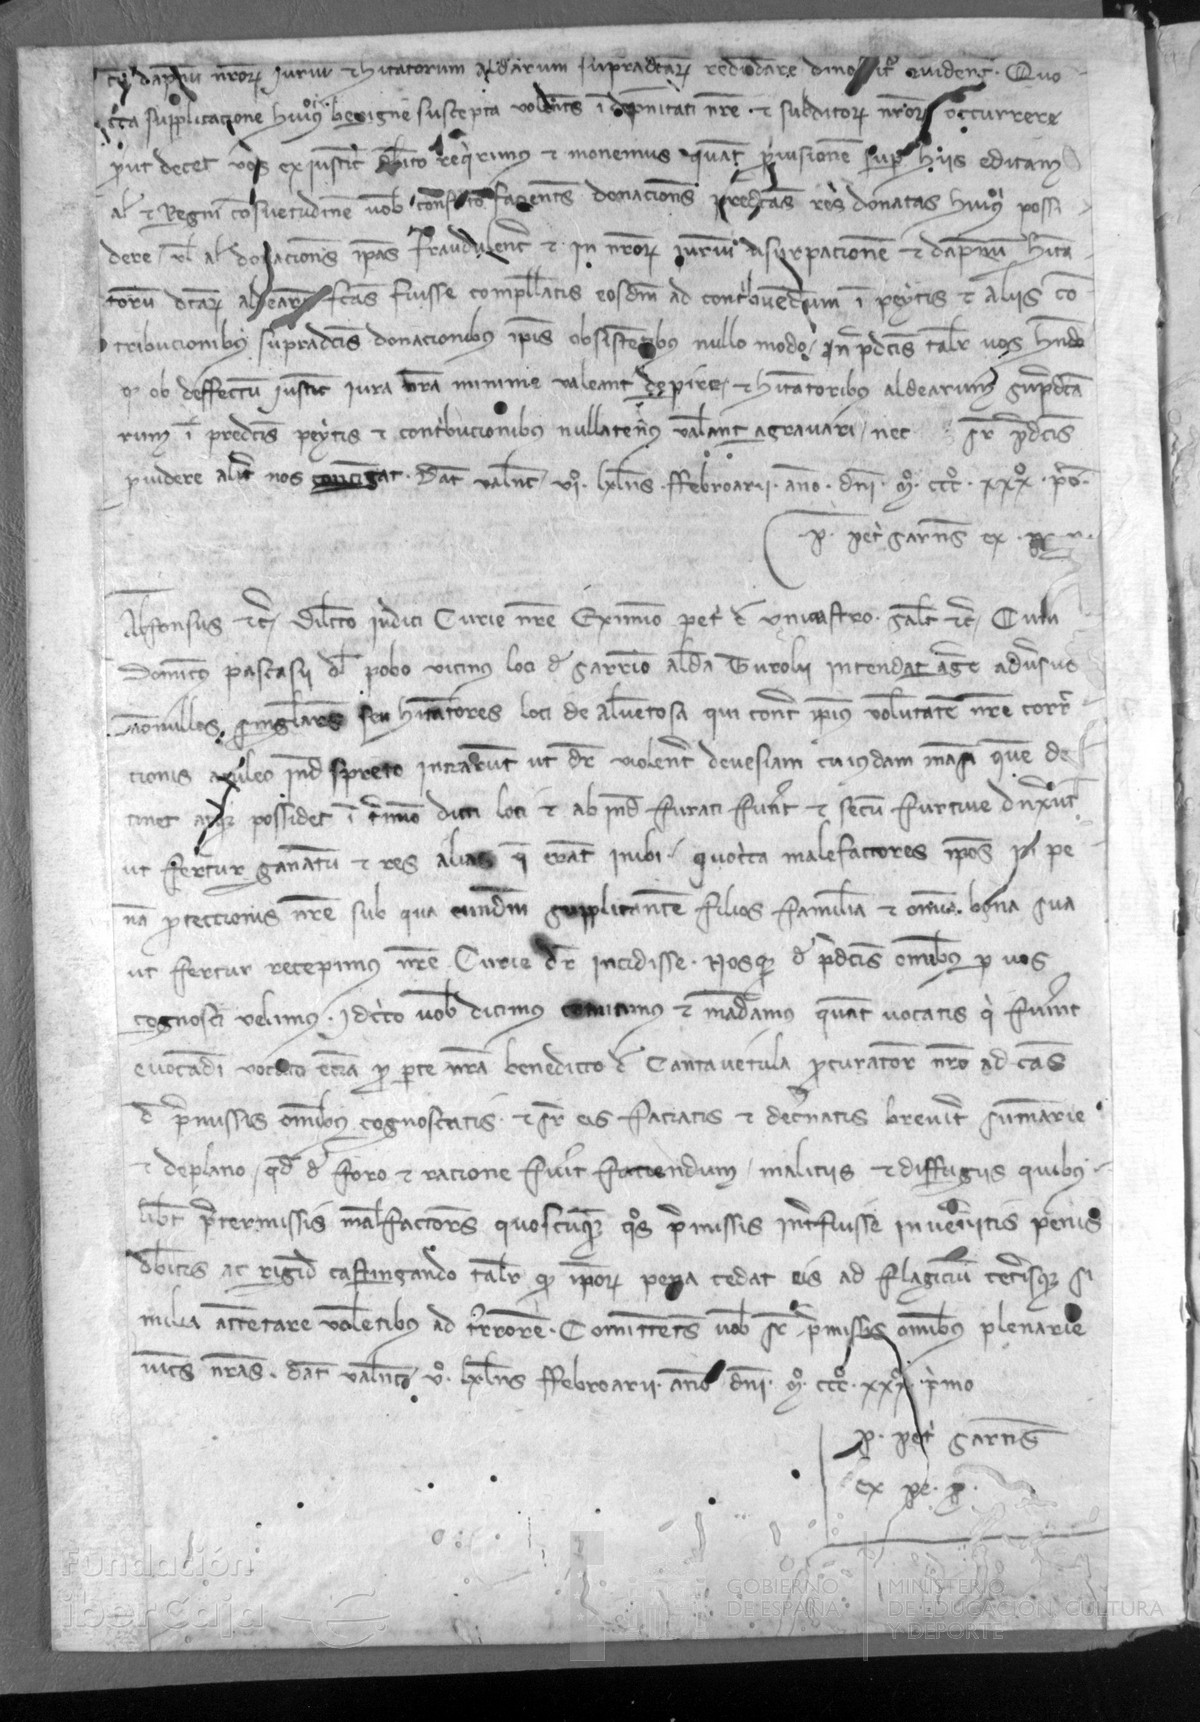 dapnu nrorum Jurium et hitatorum aldearum supradcarum redundare dinoscitur evidenter. Quo
cca supplicacione huiusmodi benigne suscepta volentes i depnitati nre et subditorum nrorum occurrere
put decet vos ex justicie debito reqirimus et monemus quat pvisionem sup hiis editam
al et Regni cosuetudine vob facients donacions predictas res donatas huiusmodi possi
dere vl al donacions ipas fraudulent et in nrorum jurium usurpacione et dapnum hita
torum dcarum aldearum fcas fuisse compellatis eosdem ad contribuendum i peytis et aliis co
tribucionibus supradcis donacionibus ipis obsistetibus nullo modo In pdcis talr vos hndo
qd ob deffectum justicie jura nra minime valeant depire et hitatoribus aldearum supdcta
rum i predcis peytis et contribucionibus nullatenus valeant agravari nec sr pdcis
pvidere alit nos contingat. Dat Valnc VIº klns Febroarii anno dni Mº CCCº XXXº pº.
p. pet garns ex p. r.
Alfonsus etc Dilcto judici Curie nre Eximino pet d Unicastro salt etc Cum
Domico pascasii dl pobo vicinus loci d Garrio alda Turolii intendat age adversus
nonnullos singlares seu hitatores loci de alventosa qui contr ipius volutate nre corr
ctionis aculeo ind spreto intrarunt ut dr violent devesiam cuiusdam masi que de
tinet atque possidet i tmio dicti loci et ab ind furati funt et secu furtive duxut
ut fertur ganatu et res alias q erat inibi quocca malefactores ipos in pe
na pteccionis nre sub qua eundem supplicante filios familia et omnia bona sua
ut fertur recepimus nre Curie dr incidisse. Nosque d pdcis omibus p vos
cognosci velimus. Idcco vob dicimus comitimus et madamus quat vocatis q fuint
evocadi vocato etia p pte nra benedicto d Cantavetula pcurator nro ad cas
d pmissis omibus cognoscatis et sr eis faciatis et decnatis brevit summarie
et deplano qd d foro et racione fuit faciendum maliciis et diffugiis quibus
libt ptermissis malfactors quoscuque qos pmissis intfuisse inveneritis penis
dbitis ac rigid castingando talr qd iporum pena cedat eis ad flagicium ceterisque si
milia attetare voletibus ad trrore. Comittents vob sr pmissis omibus plenarie
vices nras. Dat Valnc Vº klns Febroarii anno dni Mº CCCº XXXº pmo
p. pet garns
ex pe. p.
Fundación
iberCaja
GOBIERNO
DE ESPAÑA
MINISTERIO
DE EDUCACIÓN, CULTURA
Y DEPORTE